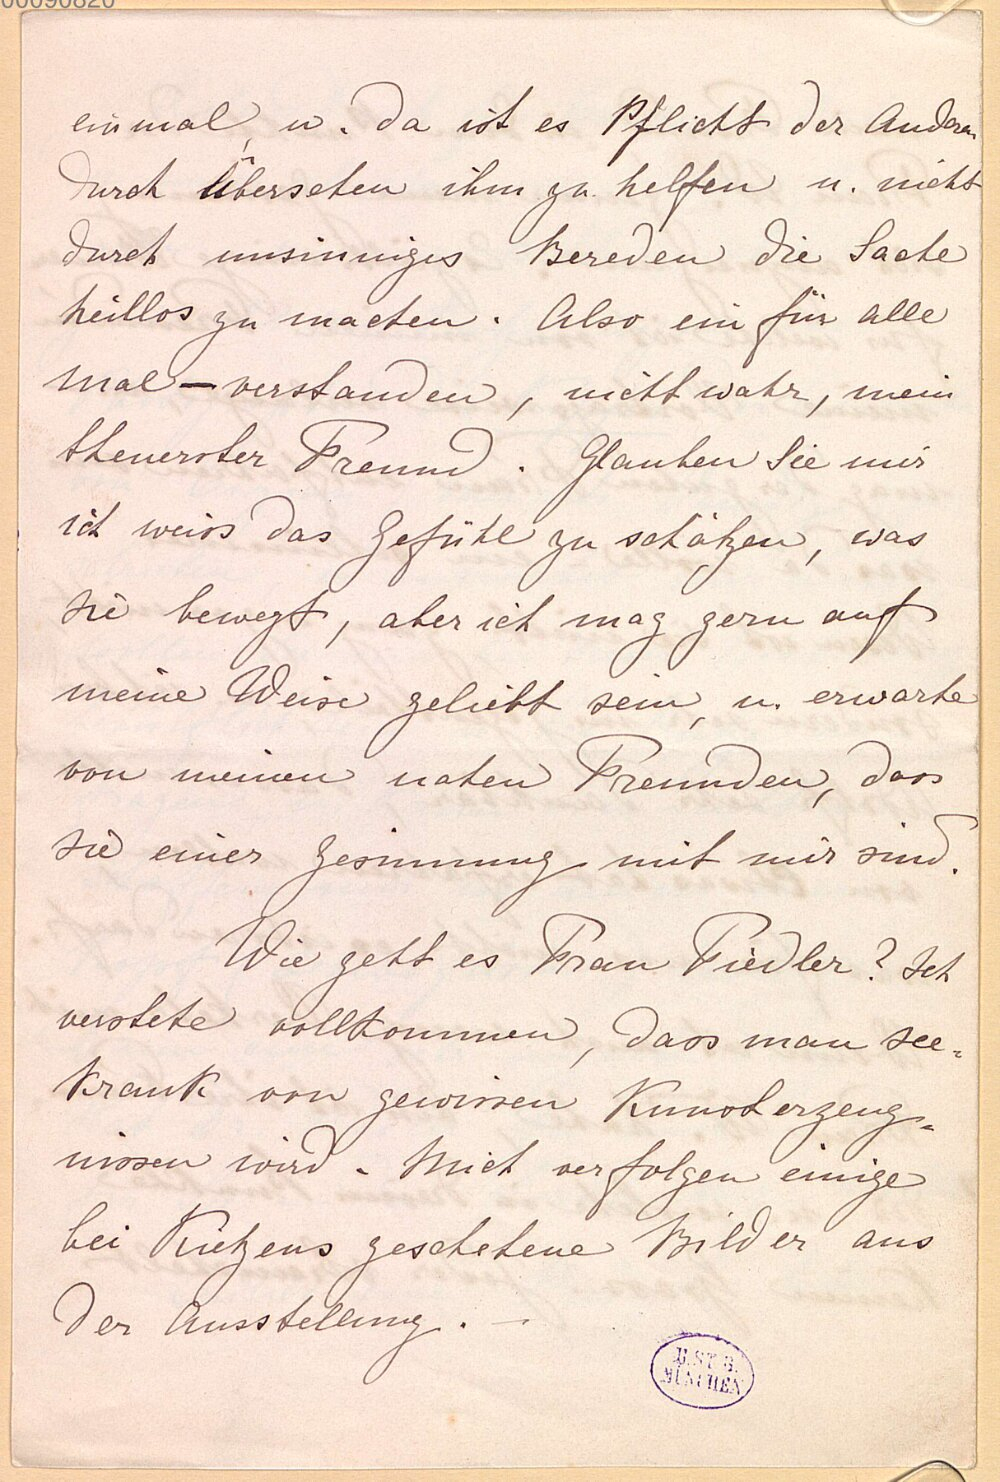 00090820
einmal, u. da ist es Pflicht der Anderen
durch Übersehen ihm zu helfen u. nicht
durch unsinniges Bereden die Sache
heillos zu machen. Also ein für alle
Mal – verstanden, nicht wahr, mein
theuerster Freund. Glauben Sie mir
ich weiss das Gefühl zu schätzen, was
sie bewegt, aber ich mag gern auf
meine Weise geliebt sein, u. erwarte
von meinen nahen Freunden, dass
sie einer Gesinnung mit mir sind.
Wie geht es Frau Fiedler? Ich
verstehe vollkommen, dass man see-
krank von gewissen Kunsterzeug-
nissen wird. Mich verfolgen einige
bei geschehene Bilder aus
der Ausstellung. –
B. ST. B.
MÜNCHEN